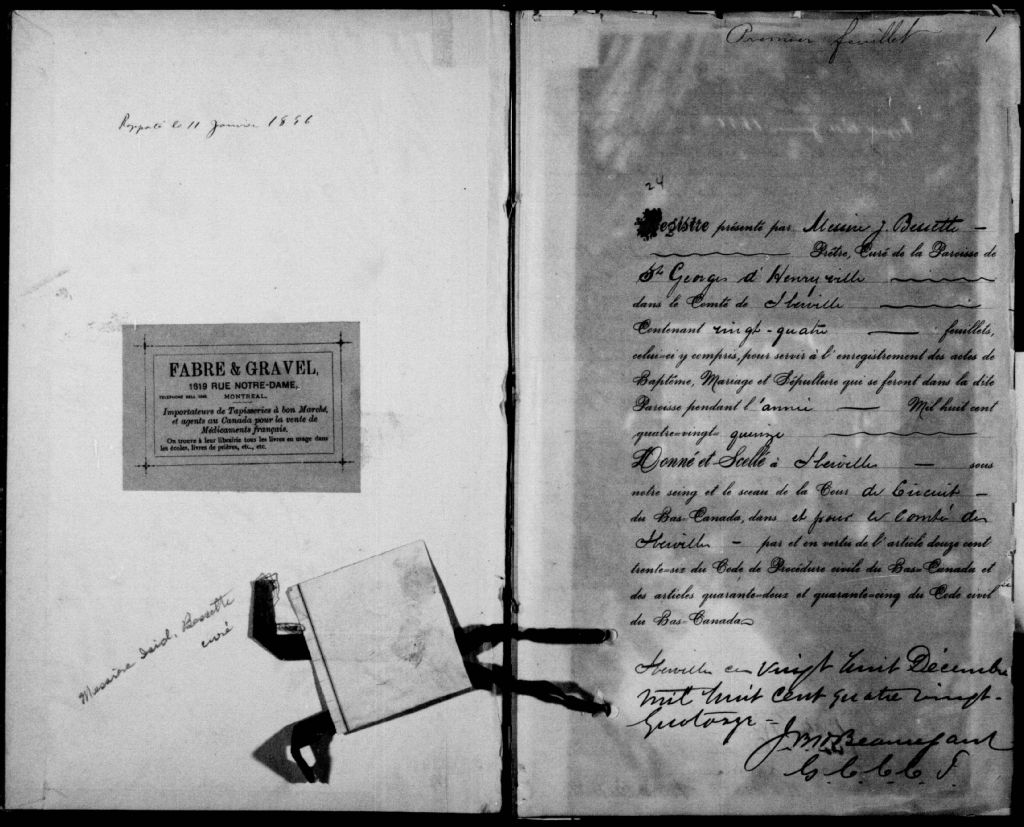 Rapporté le 11 Janvier 1896
FABRE & GRAVEL,
1619 RUE NOTRE-DAME,
TELEPHONE BELL
MONTREAL.
Importateurs de Tapisseries à bon Marché,
et agents au Canada pour la vente de
Médicaments français.
On trouve à leur librairie tous les livres en usage dans
les écoles, livres de prières, etc., etc.
Messire Isid. Bessette
curé
Premier feuillet 1
24
Registre présenté par Messire J. Bessette
Prêtre, Curé de la Paroisse de
St Georges d'Henryville
dans le Comté de Iberville
Contenant vingt-quatre feuillets,
celui-ci y compris, pour servir à l'enregistrement des actes de
Baptême, Mariage et Sépulture qui se feront dans la dite
Paroisse pendant l'année Mil huit cent
quatre-vingt-quinze
Donné et Scellé à Iberville sous
notre seing et le sceau de la Cour de Circuit
du Bas-Canada, dans et pour le Comté de
Iberville par et en vertu de l'article douze cent
trente-six du Code de Procédure civile du Bas-Canada et
des articles quarante-deux et quarante-cinq du Code civil
du Bas-Canada
Iberville ce vingt huit Décembre
mil huit cent quatre vingt-
Quatorze